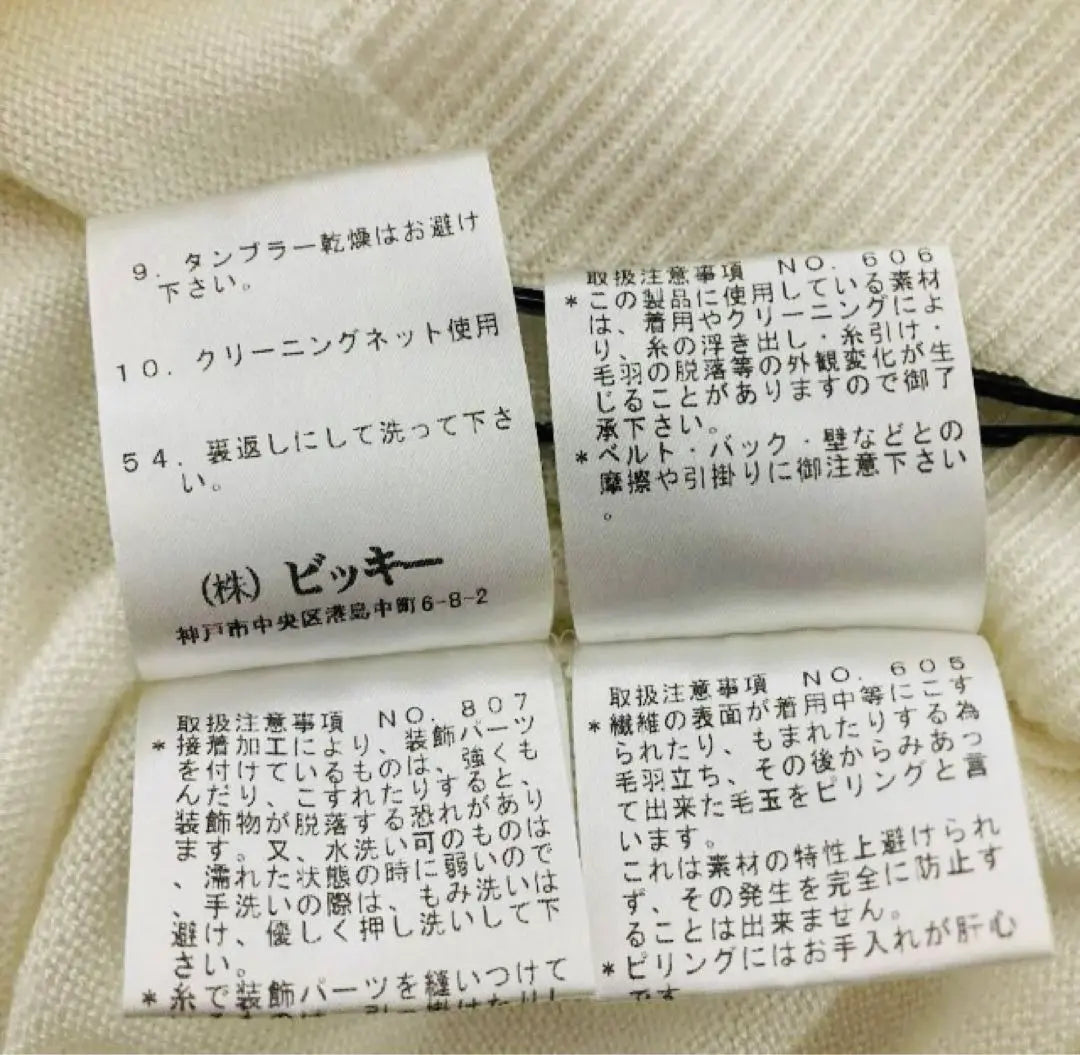 9. タンブラー乾燥はお避け
下さい。
10. クリーニングネット使用
54. 裏返しにして洗って下さ
い。
(株) ビッキー
神戸市中央区港島中町6-8-2
取扱注意事項 NO. 606
*この製品に使用している素材
は、着用やクリーニングによ
り、糸の浮き出し・糸引け・
毛羽の脱落等の外観変化が生
じることがありますので御了
承下さい。
*ベルト・バック・壁などとの
摩擦や引掛りに御注意下さい
。
取扱注意事項 NO. 807
*接着加工により、装飾パーツ
を付けているものは、強くも
んだり、こすれたりすると、
装飾物が脱落する恐れがあり
ます。又、水洗い可のものは
、濡れた状態の時に弱いので
、手洗いの際は、もみ洗いは
避け、優しく押し洗いして下
さい。
*糸で装飾パーツを縫いつけて
取扱注意事項 NO. 605
*繊維の表面が着用中等にこす
られたり、もまれたりする為
毛羽立ち、その後からみあっ
て出来た毛玉をピリングと言
います。
これは素材の特性上避けられ
ず、その発生を完全に防止す
ることは出来ません。
*ピリングにはお手入れが肝心
です。